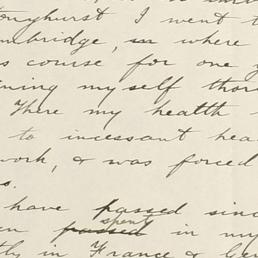 onyhurst I went t
mbridge, in where
s course for one y
ning my self thor
There my health
to incessant hea
work, & was forced
s.
have passed sinc
spent
en passed in my
tly in France & Ger